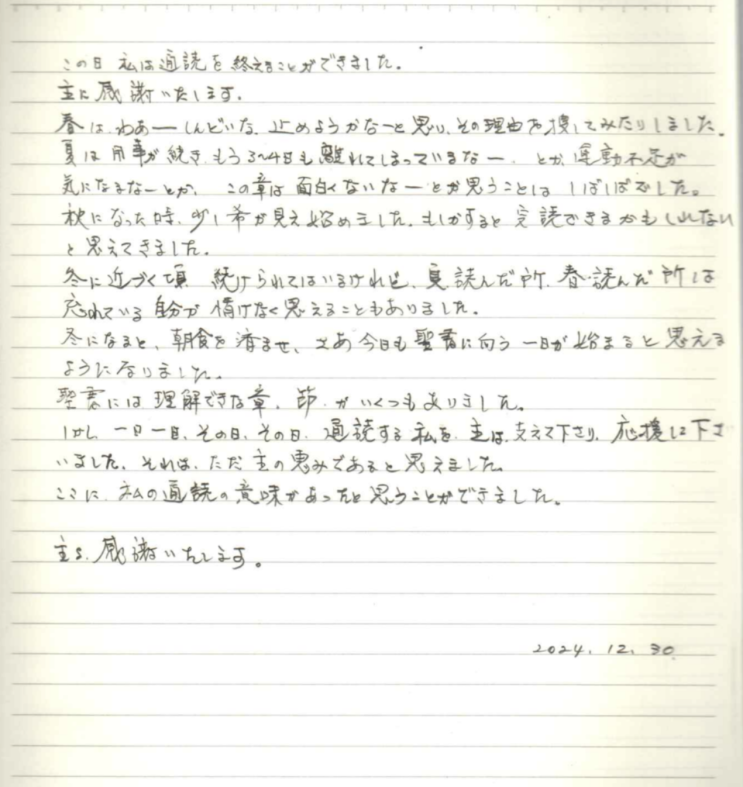 この日 私は通読を終えることができました。
主に感謝いたします。
春は、わあーしんどいな、止めようかなーと思い、その理由を捜してみたりしました。
夏は用事が続き、もう3〜4日も離れてしまっているなー、とか、運動不足が
気になるなーとか、この章は面白くないなーとか思うことはしばしばでした。
秋になった時、少し希が見え始めました。もしかすると完読できるかもしれない
と思えてきました。
冬に近づく頃 続けられてはいるけれど、夏読んだ所、春読んだ所は
忘れている自分が情けなく思えることもありました。
冬になると、朝食を済ませ、さあ今日も聖書に向う一日が始まると思える
ようになりました。
聖書には理解できな章、節、がいくつもありました。
しかし一日一日、その日、その日、通読する私を、主は、支えて下さり、応援して下さ
いました。それは、ただ主の恵みであると思えました。
ここに、私の通読の意味があったと思うことができました。
主よ、感謝いたします。
2024. 12. 30